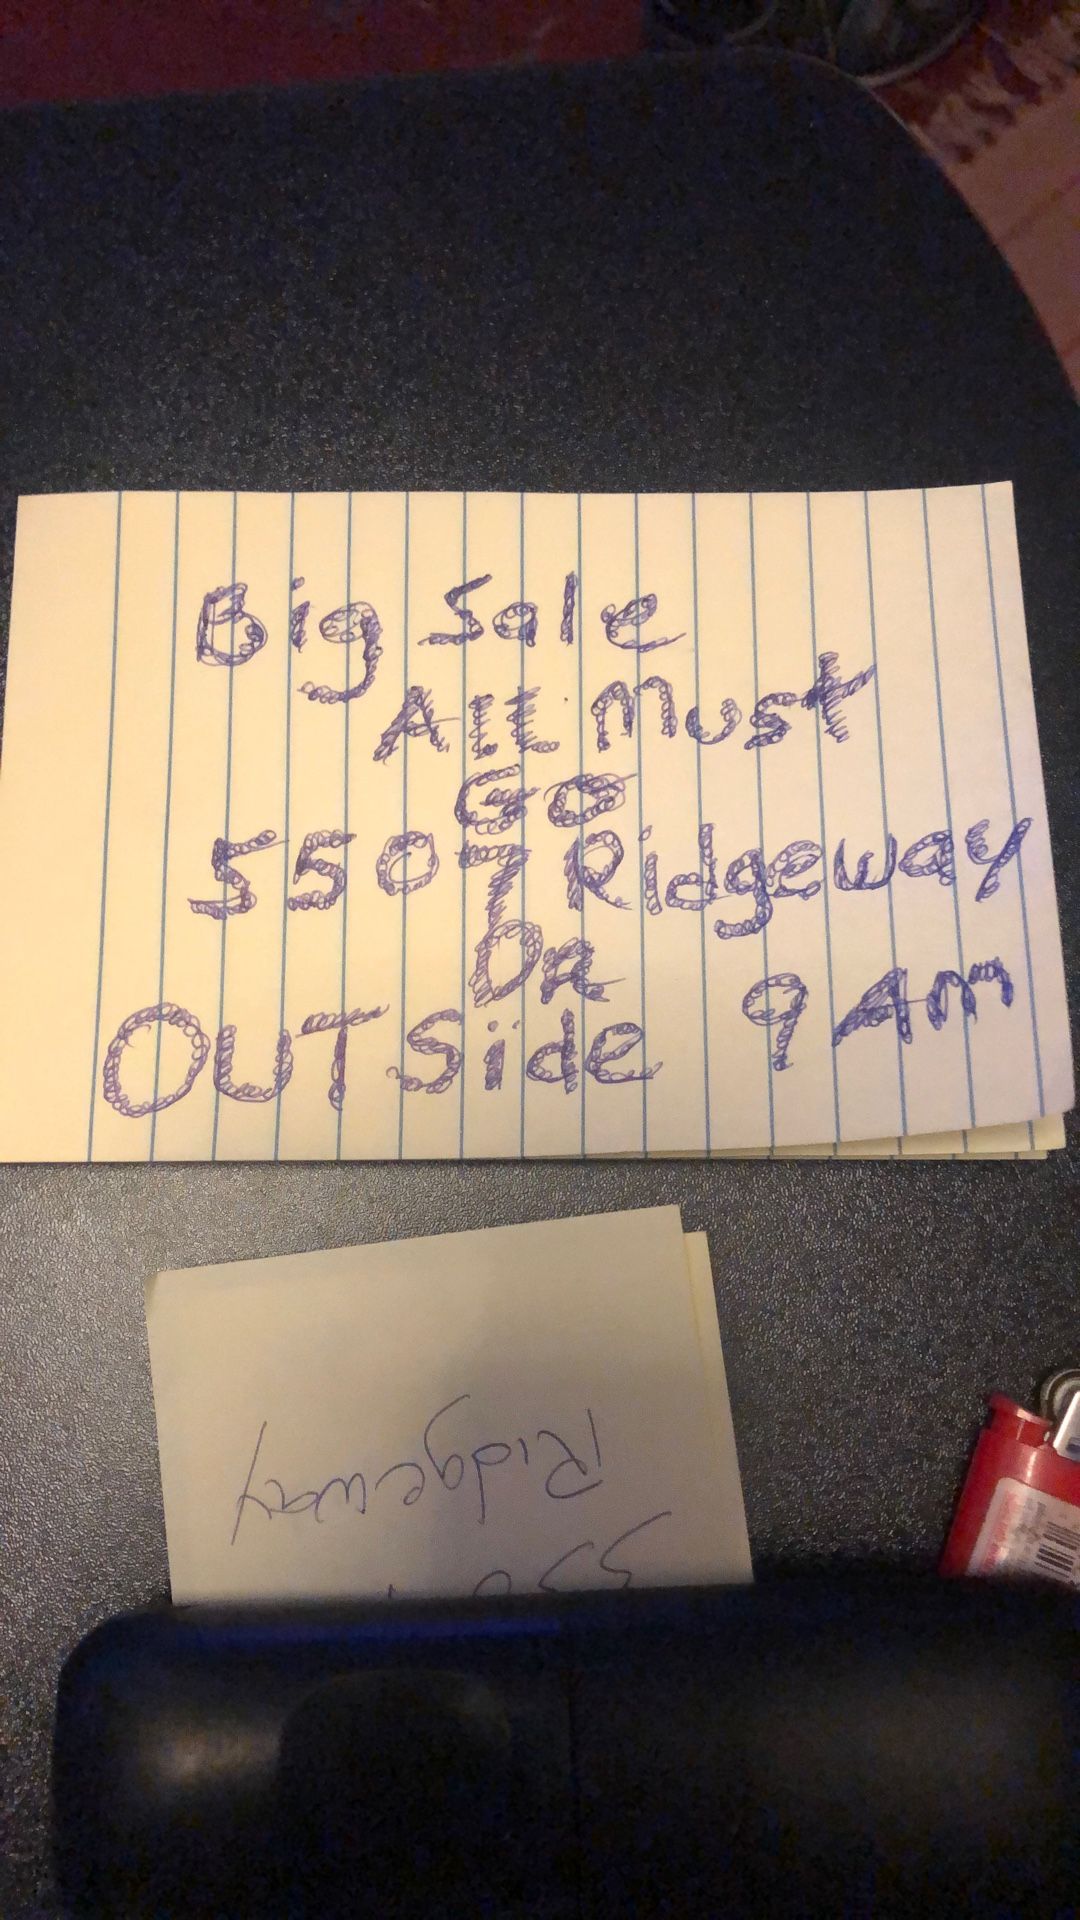 Big Sale
All Must
Go
5507 Ridgeway
DR
OUTSide 9 Am
Ridgeway